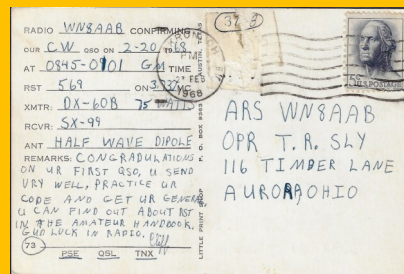 RADIO WN8AAB CONFIRMING
OUR CW QSO ON 2-20 1968
AT 0845-0901 GM TIME
RST 569 ON 3.737 MC
XMTR: DX-60B 75 WATTS
RCVR: SX-99
ANT HALF WAVE DIPOLE
REMARKS: CONGRADULATIONS
ON UR FIRST QSO, U SEND
VRY WELL, PRACTICE UR
CODE AND GET UR GENERAL
U CAN FIND OUT ABOUT RST
IN THE AMATEUR HANDBOOK.
GUD LUCK IN RADIO.
73 Cliff
PSE QSL TNX
LITTLE PRINT SHOP P. O. BOX 9363 AUSTIN, TEXAS
32
PM
FEB
1968
5c U.S. POSTAGE
ARS WN8AAB
OPR T. R. SLY
116 TIMBER LANE
AURORA, OHIO